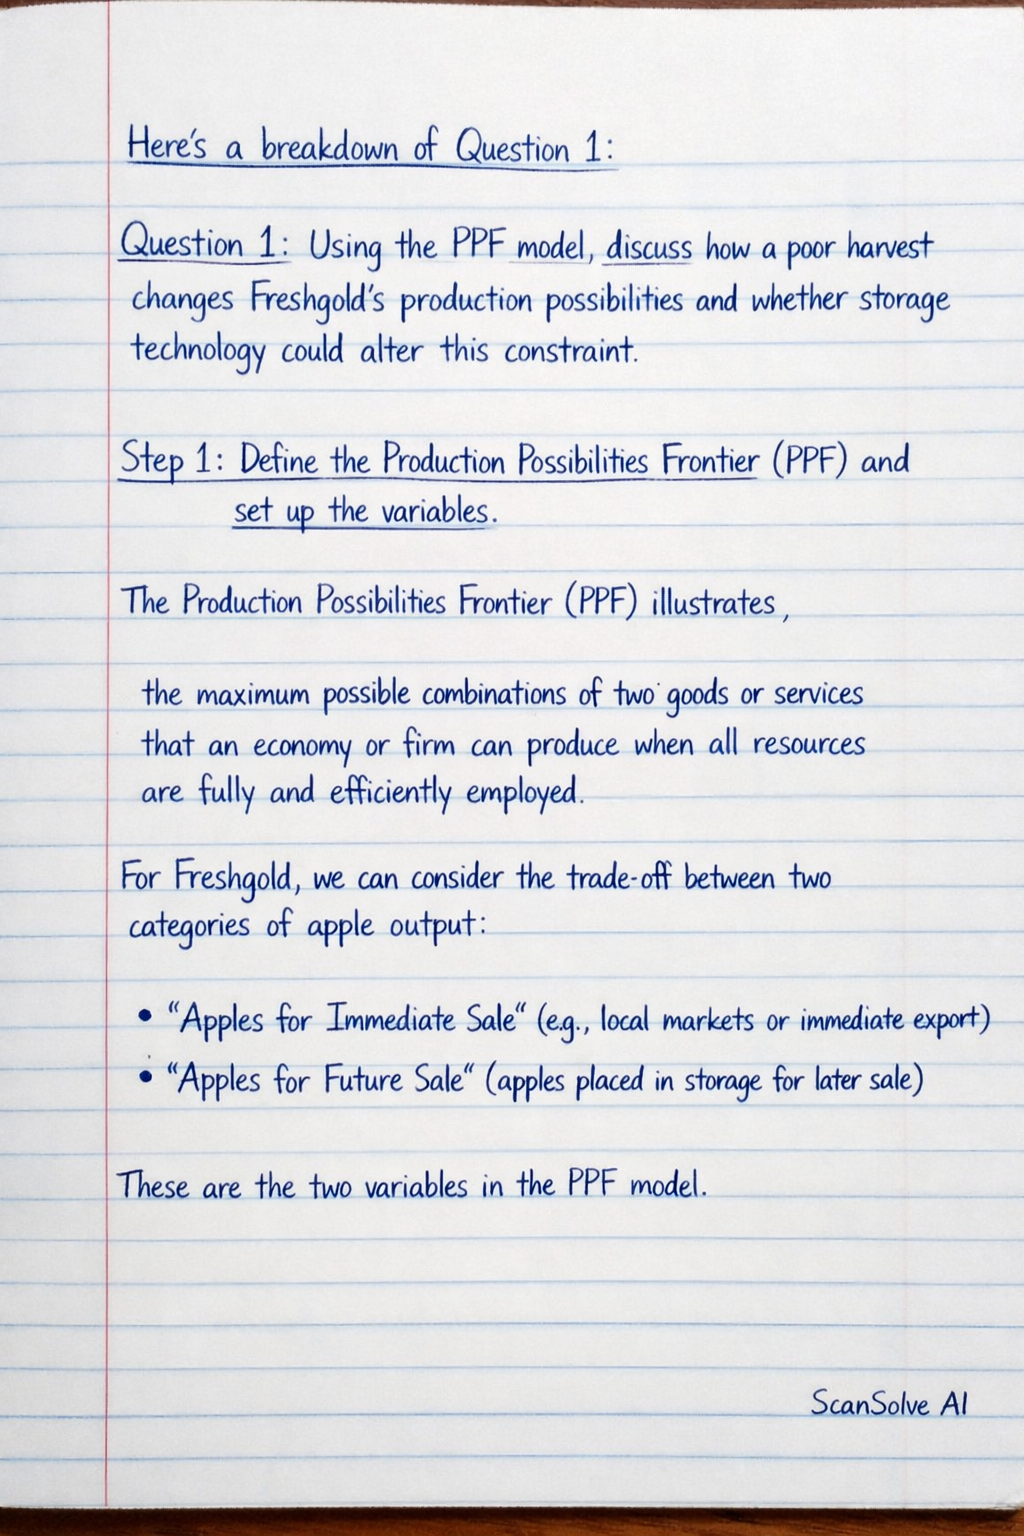 Here's a breakdown of Question 1:
Question 1: Using the PPF model, discuss how a poor harvest
changes Freshgold's production possibilities and whether storage
technology could alter this constraint.
Step 1: Define the Production Possibilities Frontier (PPF) and
set up the variables.
The Production Possibilities Frontier (PPF) illustrates,
the maximum possible combinations of two goods or services
that an economy or firm can produce when all resources
are fully and efficiently employed.
For Freshgold, we can consider the trade-off between two
categories of apple output:
• “Apples for Immediate Sale“ (e.g., local markets or immediate export)
• “Apples for Future Sale“ (apples placed in storage for later sale)
These are the two variables in the PPF model.
ScanSolve AI